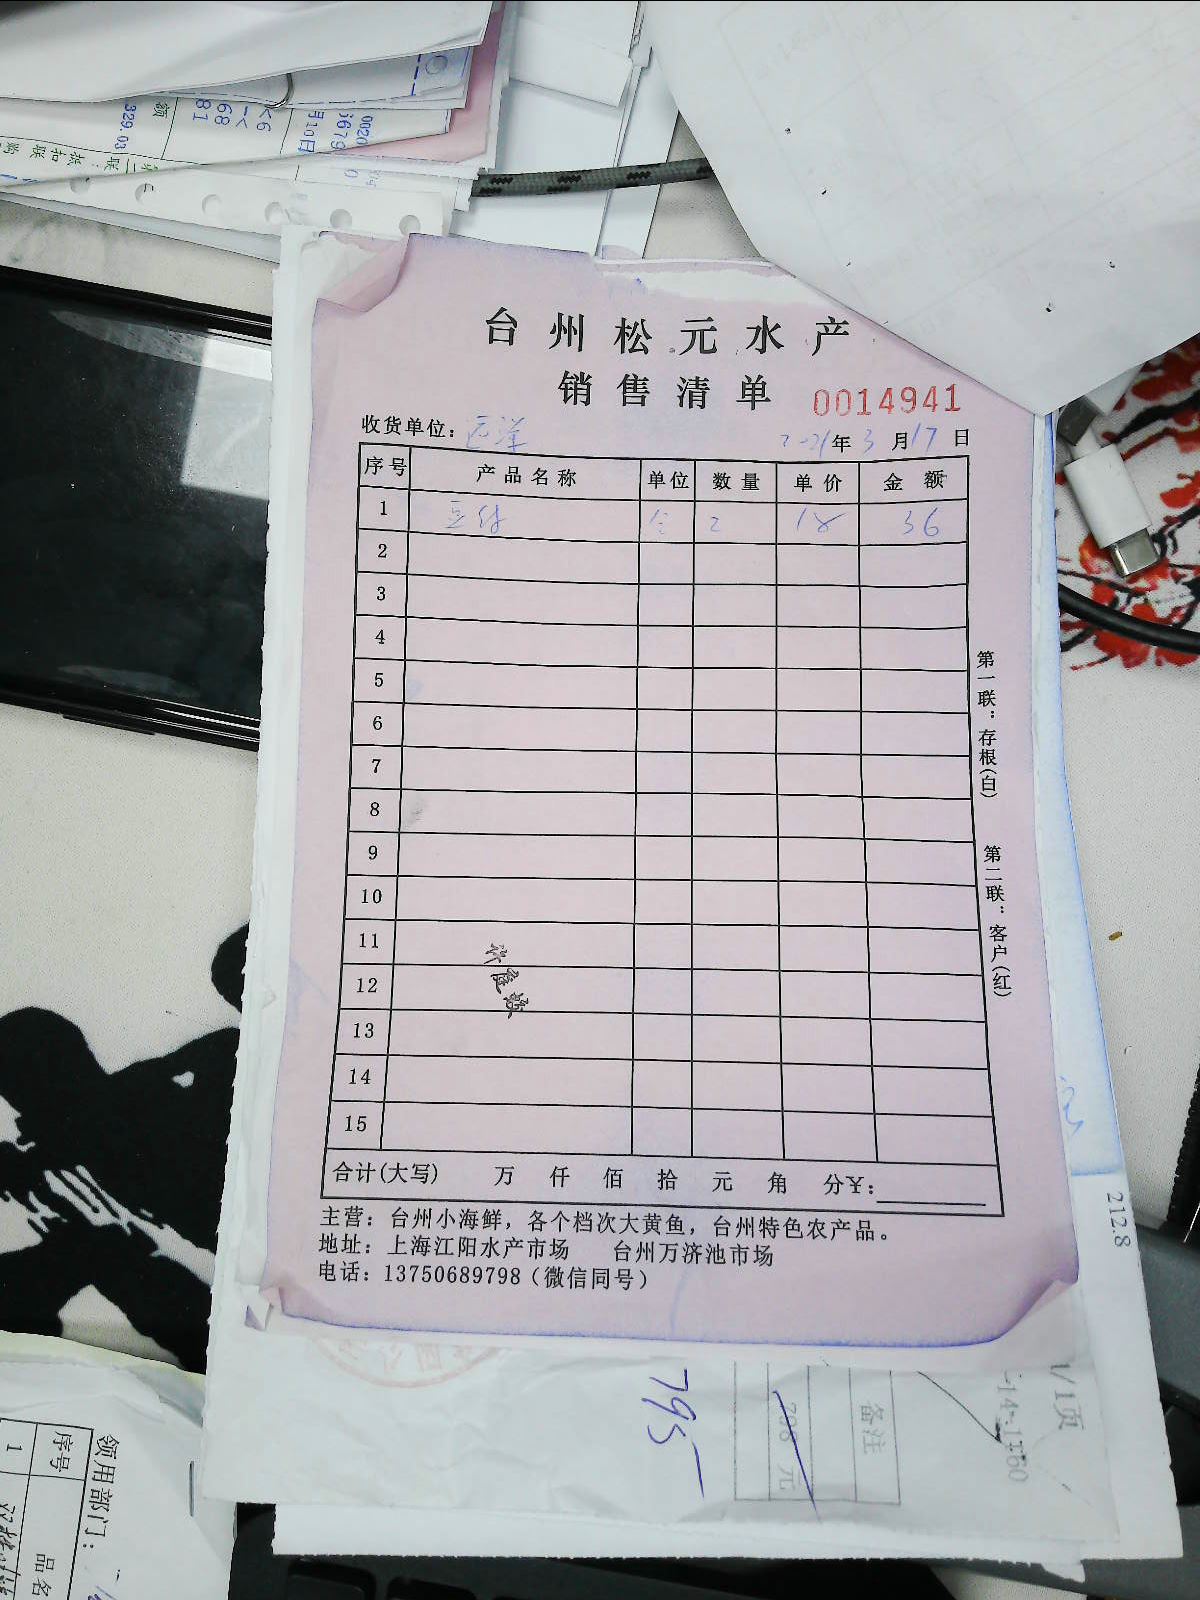 台州松元水产
销售清单 0014941
收货单位: 2021年3月17日
序号 产品名称 单位 数量 单价 金额
1 2 18 36
2
3
4
5
6
7
8
9
10
11
12
13
14
15
合计(大写) 万 仟 佰 拾 元 角 分¥:
主营: 台州小海鲜, 各个档次大黄鱼, 台州特色农产品。
地址: 上海江阳水产市场 台州万济池市场
电话: 13750689798 (微信同号)
第一联: 存根(白)
第二联: 客户(红)
795
备注
1/1页
212.8
领用部门:
序号
品名
1
329.03
68
81
额